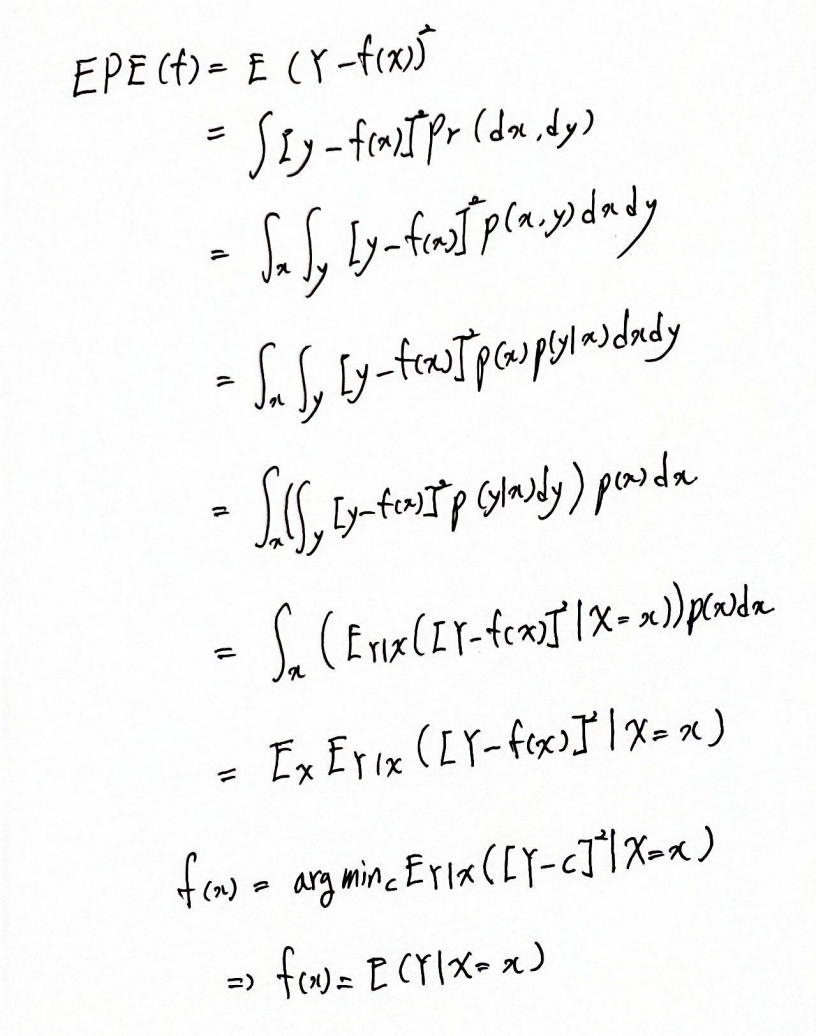 EPE(f) = E(Y-f(x))²
= ∫[y-f(x)]² Pr(dx,dy)
= ∫ₓ∫ᵧ [y-f(x)]² p(x,y)dxdy
= ∫ₓ∫ᵧ [y-f(x)]² p(x)p(y|x)dxdy
= ∫ₓ(∫ᵧ [y-f(x)]² p(y|x)dy) p(x)dx
= ∫ₓ (E_Y|X([Y-f(x)]²|X=x))p(x)dx
= E_X E_Y|X ([Y-f(x)]²|X=x)
f(x) = arg min_c E_Y|X([Y-c]²|X=x)
⇒ f(x) = E(Y|X=x)